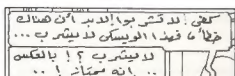 كفى! لا تشربوا! لابد أن هناك
خطأ ما فهذا الويسكي لا يشرب ...
لا يشرب ؟! بالعكس
.. إنه ممتاز ! ..